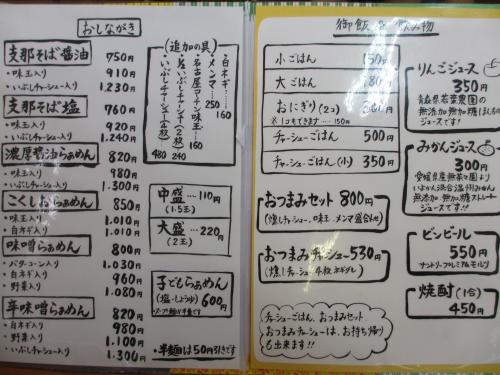 おしながき
支那そば醤油 750円
・味玉入り 910円
・いぶしチャーシュー入り 1.230円
支那そば塩 760円
・味玉入り 920円
・いぶしチャーシュー入り 1.240円
濃厚醤油らぁめん 820円
・味玉入り 980円
・いぶしチャーシュー入り 1.300円
こくしおらぁめん 850円
・味玉入り 1.010円
・白ネギ入り 1.010円
味噌らぁめん 800円
・バターコーン入り 1.030円
・白ネギ入り 960円
・野菜入り 1.080円
辛味噌らぁめん 820円
・白ネギ入り 980円
・野菜入り 1.100円
・いぶしチャーシュー入り 1.300円
(追加の具)
・白ネギ……160
・メンマ……250
・名古屋コーチン味玉…160
・いぶしチャーシュー(2枚) 240
・いぶしチャーシュー(4枚) 480
中盛…110円
(1.5玉)
大盛…220円
(2玉)
子どもらぁめん
(塩・しょうゆ) 600円
・半麺は50円引きです
御飯・お飲み物
小ごはん 150円
大ごはん 180円
おにぎり(2コ)
※1コもできます……150円
チャーシューごはん 500円
チャーシューごはん(小) 350円
おつまみセット 800円
(燻しチャーシュー、味玉、メンマ盛合わせ)
おつまみチャーシュー 530円
(燻しチャーシュー4枚、ネギダレ)
チャーシューごはん、おつまみセット、
おつまみチャーシューは、お持ち帰り
も出来ます!!
りんごジュース
350円
青森県岩葉農園の
無添加無加糖
ジュースです!!
みかんジュース
300円
愛媛県産無茶々園より
いよかん混合温州みかん
無添加無加糖ストレート
ジュースです!!
ビンビール
550円
サントリープレミアムモルツ
焼酎(1合)
450円